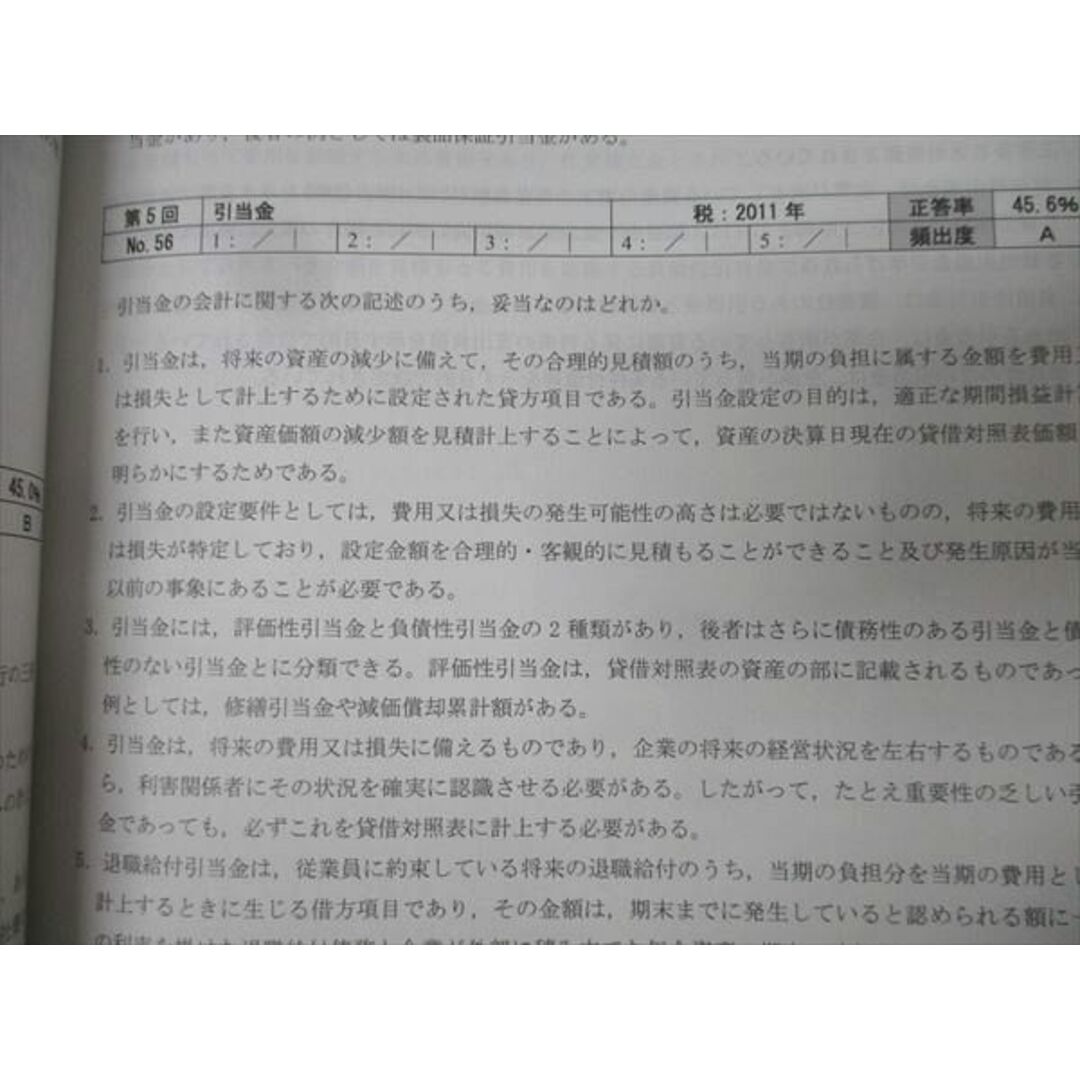 製品保証引当金がある。
第5回 引当金 税：2011年 正答率 45.6%
No.56 1：／｜ 2：／｜ 3：／｜ 4：／｜ 5：／｜ 頻出度 A
引当金の会計に関する次の記述のうち，妥当なのはどれか。
1. 引当金は，将来の資産の減少に備えて，その合理的見積額のうち，当期の負担に属する金額を費用
は損失として計上するために設定された貸方項目である。引当金設定の目的は，適正な期間損益計
を行い，また資産価額の減少額を見積計上することによって，資産の決算日現在の貸借対照表価額
明らかにするためである。
45.0%
B
2. 引当金の設定要件としては，費用又は損失の発生可能性の高さは必要ではないものの，将来の費用
は損失が特定しており，設定金額を合理的・客観的に見積もることができること及び発生原因が当
以前の事象にあることが必要である。
3. 引当金には，評価性引当金と負債性引当金の2種類があり，後者はさらに債務性のある引当金と債
性のない引当金とに分類できる。評価性引当金は，貸借対照表の資産の部に記載されるものであっ
例としては，修繕引当金や減価償却累計額がある。
4. 引当金は，将来の費用又は損失に備えるものであり，企業の将来の経営状況を左右するものである
ら，利害関係者にその状況を確実に認識させる必要がある。したがって，たとえ重要性の乏しい引
金であっても，必ずこれを貸借対照表に計上する必要がある。
5. 退職給付引当金は，従業員に約束している将来の退職給付のうち，当期の負担分を当期の費用とし
計上するときに生じる借方項目であり，その金額は，期末までに発生していると認められる額に